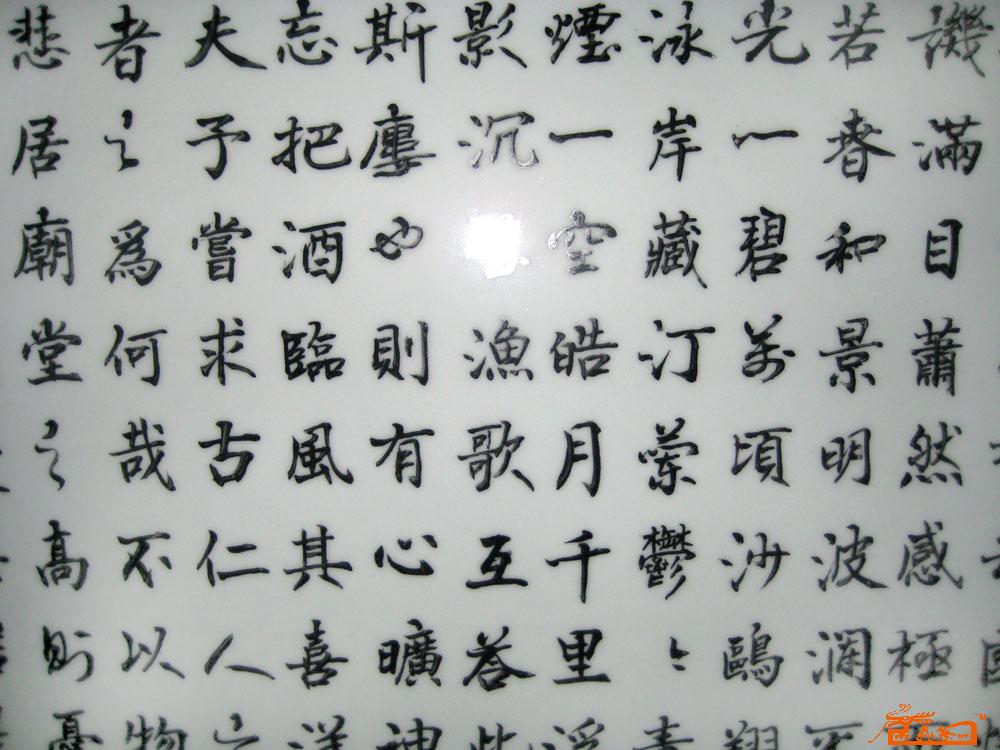 譏滿目蕭然感極
若春和景明波瀾
光一碧萬頃沙鷗翔
泳岸藏汀蘭鬱〻青
煙一空皓月千里浮
影沉漁歌互荅此
斯廔也則有心曠神
忘把酒臨風其喜洋
夫予嘗求古仁人之
者之爲何哉不以物
悲居廟堂之高則憂